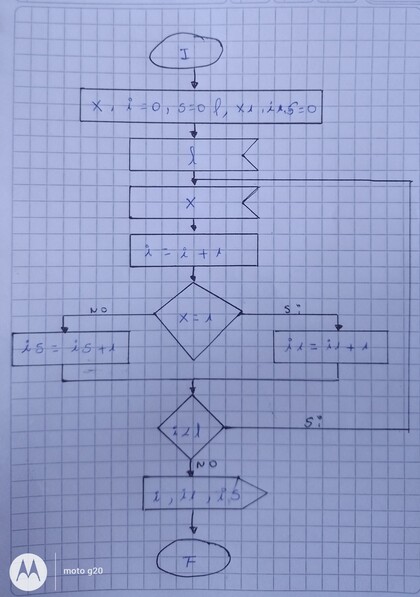 I
x, i=0, s=0 l, x1, i1s=0
l
x
i = i + 1
NO
x = 1
Si
is = is+1
i1 = i1 + 1
i<l
Si
NO
i, i1, is
F
moto g20